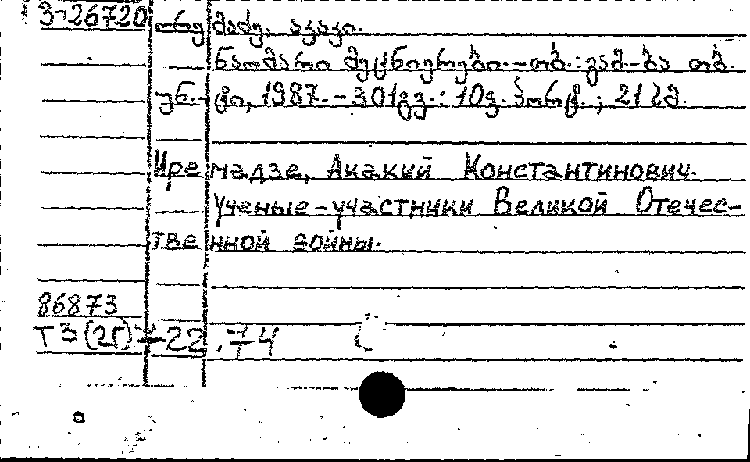 3-26720 ირემაძე, აკაკი.
ნაომარი მეცნიერები.-თბ.: გამ-ბა თბ.
უნ.-ტი, 1987.-301გვ.: 10ფ. პორტ.; 21 სმ.
Иремадзе, Акакий Константинович.
Ученые-участники Великой Отечес-
твенной войны.
86873
Т3(2Г)722.74